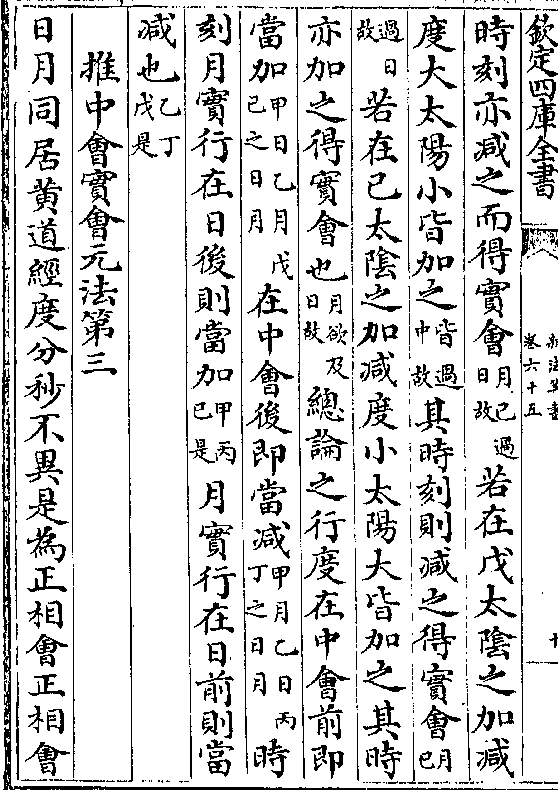 欽定四庫全書
新法算書
卷六十五
十
時刻亦減之而得實會月已過日故若在戊太陰之加減
度大太陽小皆加之皆過中故其時刻則減之得實會月已
過日故若在己太陰之加減度小太陽大皆加之其時
亦加之得實會也月欲及日故總論之行度在中會前即
當加甲日乙月戊己之日月在中會後即當減甲月乙日丙丁之日月時
刻月實行在日後則當加甲丙己是月實行在日前則當
減也乙丁戊是
推中會實會元法第三
日月同居黃道經度分秒不異是為正相會正相會